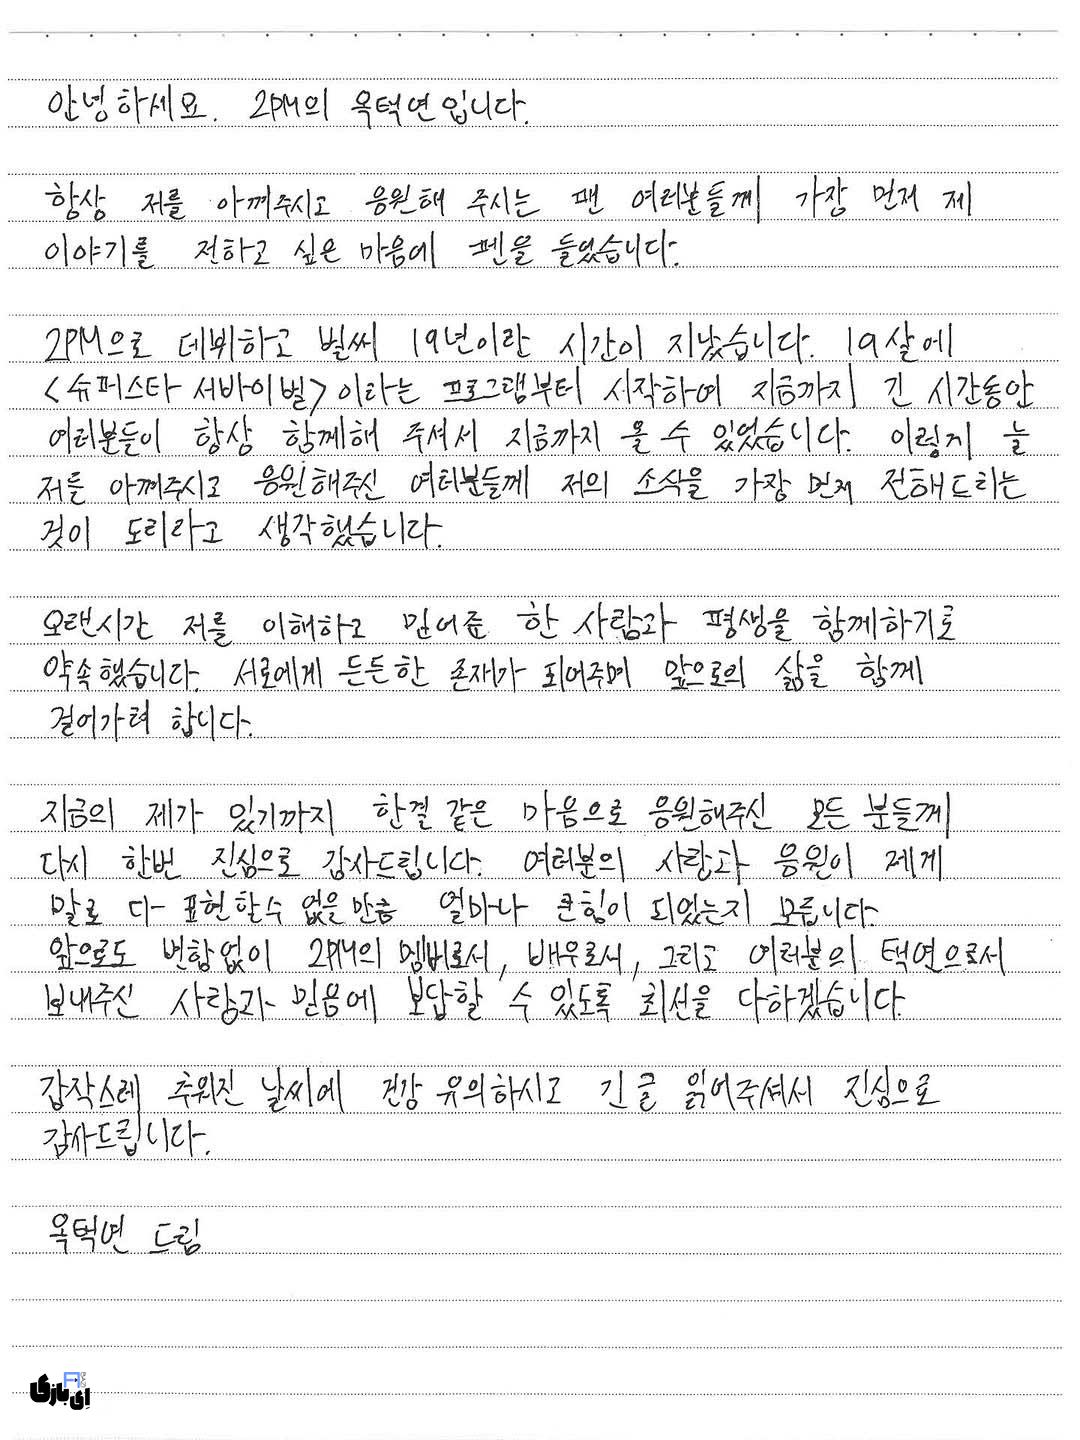 안녕하세요. 2PM의 옥택연입니다.
항상 저를 아껴주시고 응원해 주시는 팬 여러분들께 가장 먼저 제
이야기를 전하고 싶은 마음에 펜을 들었습니다.
2PM으로 데뷔하고 벌써 19년이란 시간이 지났습니다. 19살에
<슈퍼스타 서바이벌> 이라는 프로그램부터 시작하여 지금까지 긴 시간동안
여러분들이 항상 함께해 주셔서 지금까지 올 수 있었습니다. 이렇게 늘
저를 아껴주시고 응원해주신 여러분들께 저의 소식을 가장 먼저 전해드리는
것이 도리라고 생각했습니다.
오랜시간 저를 이해하고 믿어준 한 사람과 평생을 함께하기로
약속했습니다. 서로에게 든든한 존재가 되어주며 앞으로의 삶을 함께
걸어가려 합니다.
지금의 제가 있기까지 한결 같은 마음으로 응원해주신 모든 분들께
다시 한번 진심으로 감사드립니다. 여러분의 사랑과 응원이 제게
말로 다 표현할수 없을만큼 얼마나 큰힘이 되었는지 모릅니다.
앞으로도 변함없이 2PM의 멤버로서, 배우로서, 그리고 여러분의 택연으로서
보내주신 사랑과 믿음에 보답할 수 있도록 최선을 다하겠습니다.
갑작스레 추워진 날씨에 건강 유의하시고 긴 글 읽어주셔서 진심으로
감사드립니다.
옥택연 드림
ای بازی